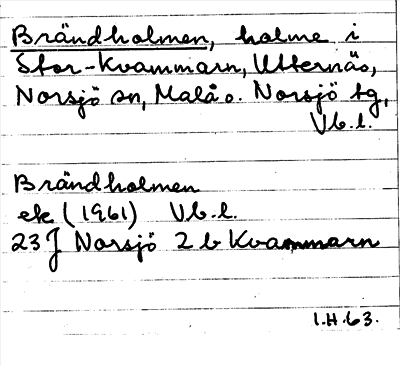 Brändholmen, holme i
Stor-Kvammarn, Utternäs,
Norsjö sn, Malå o. Norsjö tg,
Vb.l.
Brändholmen
ek (1961) Vb.l.
23 J Norsjö 2 b Kvammarn
I.H.63.